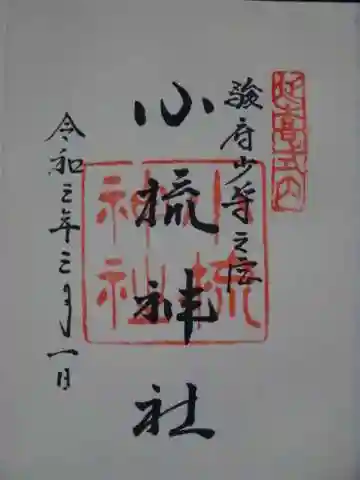 延喜式内
駿府少将之宮
小梳神社
小梳
神社
令和三年三月一日